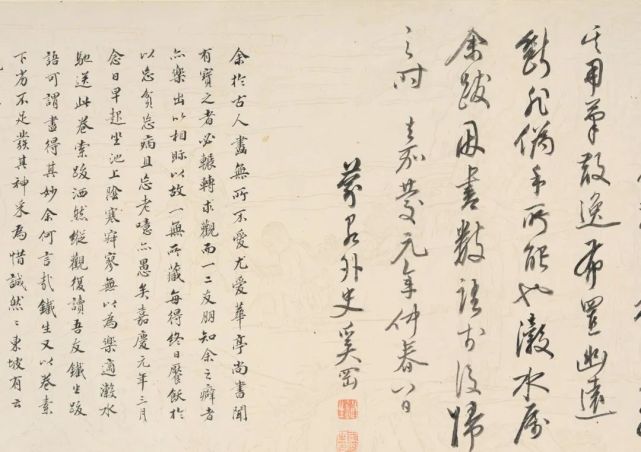 其用筆敧逸布置幽遠
斷非僞手所能也瀫水屬
余跋因書數語於後歸
之時 嘉慶元年仲春八日
蒙泉外史奚岡
余於古人畫無所不愛尤愛華亭尚書聞
有寶之者必輾轉求觀而一二友朋知余之癖者
亦樂出以相眎以故一無所藏每得終日饜飫於
以忘貧忘病且忘老噫亦愚矣嘉慶元年三月
念日早起坐池上陰寒寂寥無以為樂適瀫水
馳送此卷索跋洒然縱觀復讀吾友鐵生跋
語可謂畫得其妙余何言哉鐵生又以卷素
下劣不足發其神采為惜誠然〻東坡有云